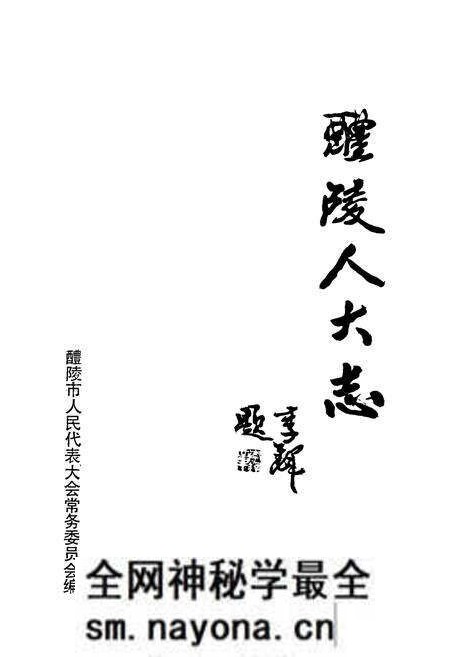 醴陵人大志
李辉
题
醴陵市人民代表大会常务委员会编
全网神秘学最全
sm.nayona.cn